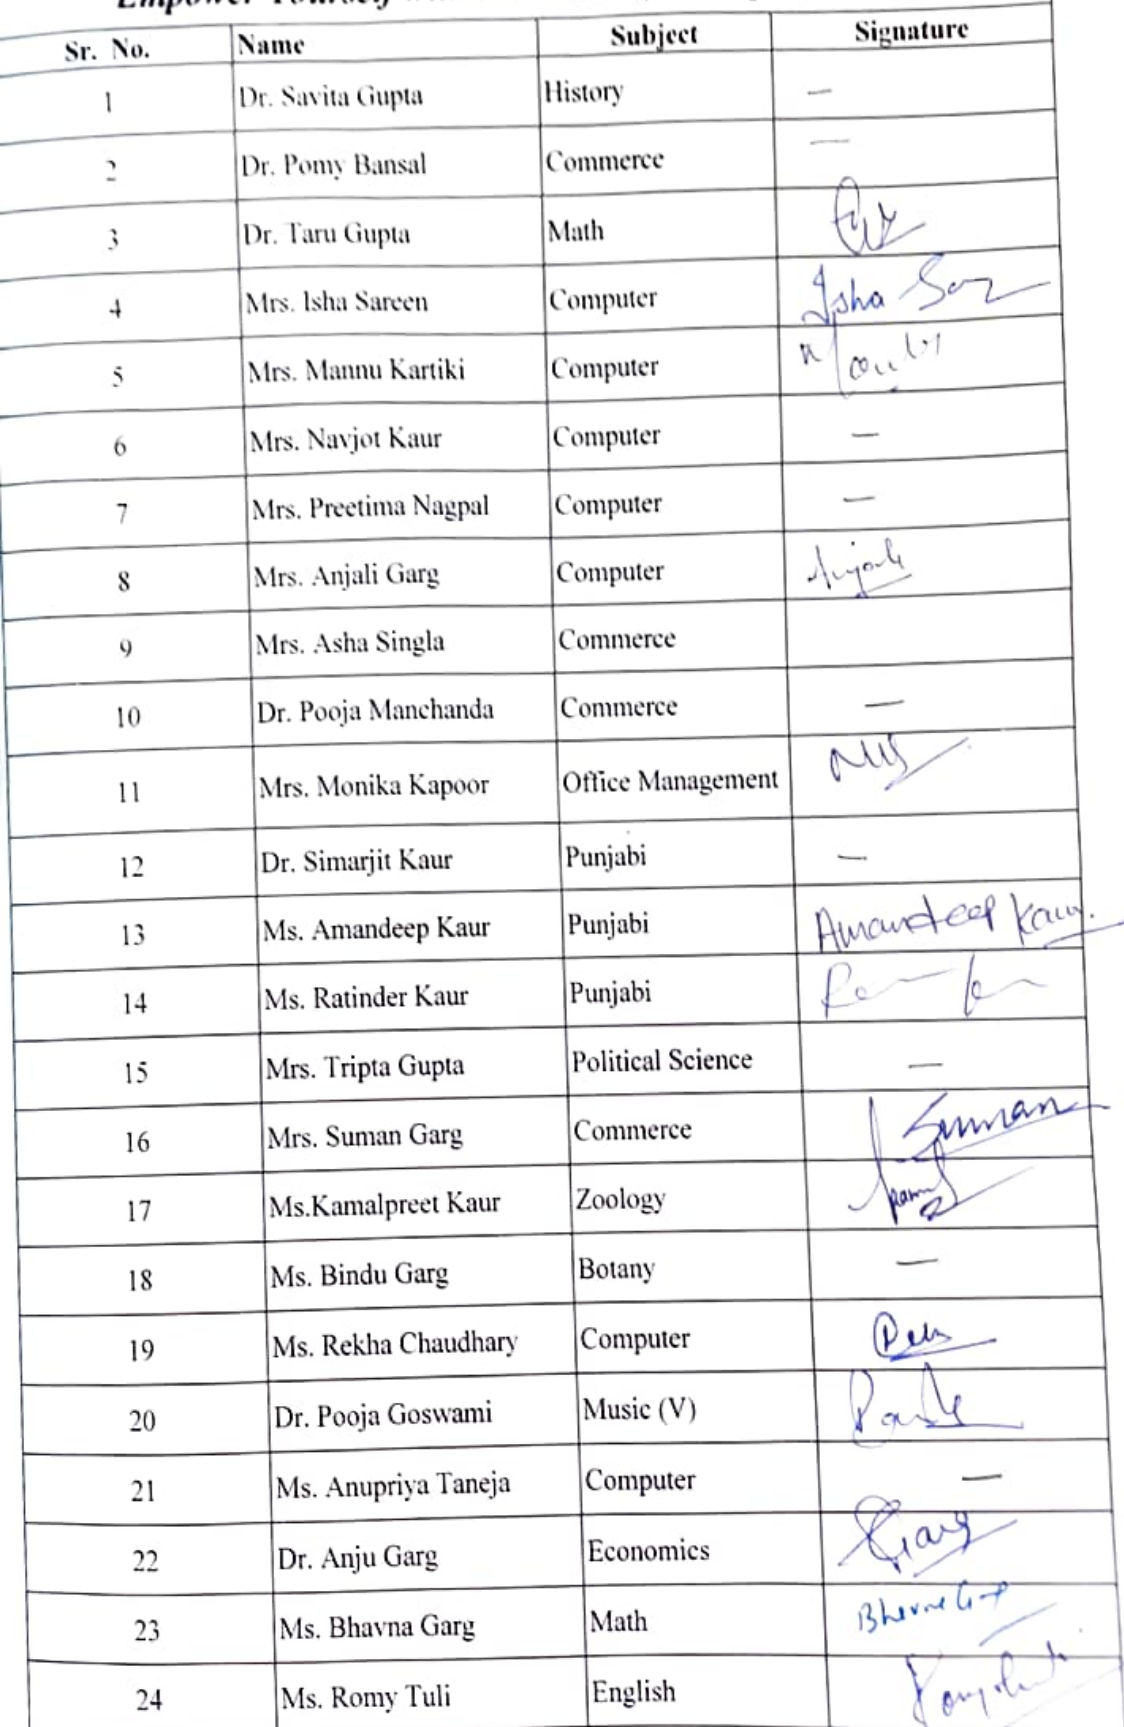 Empower Yourself
Sr. No. Name Subject Signature
1 Dr. Savita Gupta History —
2 Dr. Pomy Bansal Commerce —
3 Dr. Taru Gupta Math
4 Mrs. Isha Sareen Computer Isha
5 Mrs. Mannu Kartiki Computer
6 Mrs. Navjot Kaur Computer —
7 Mrs. Preetima Nagpal Computer —
8 Mrs. Anjali Garg Computer
9 Mrs. Asha Singla Commerce
10 Dr. Pooja Manchanda Commerce —
11 Mrs. Monika Kapoor Office Management
12 Dr. Simarjit Kaur Punjabi —
13 Ms. Amandeep Kaur Punjabi Amandeep Kaur.
14 Ms. Ratinder Kaur Punjabi
15 Mrs. Tripta Gupta Political Science —
16 Mrs. Suman Garg Commerce Suman
17 Ms.Kamalpreet Kaur Zoology
18 Ms. Bindu Garg Botany —
19 Ms. Rekha Chaudhary Computer
20 Dr. Pooja Goswami Music (V)
21 Ms. Anupriya Taneja Computer —
22 Dr. Anju Garg Economics
23 Ms. Bhavna Garg Math
24 Ms. Romy Tuli English